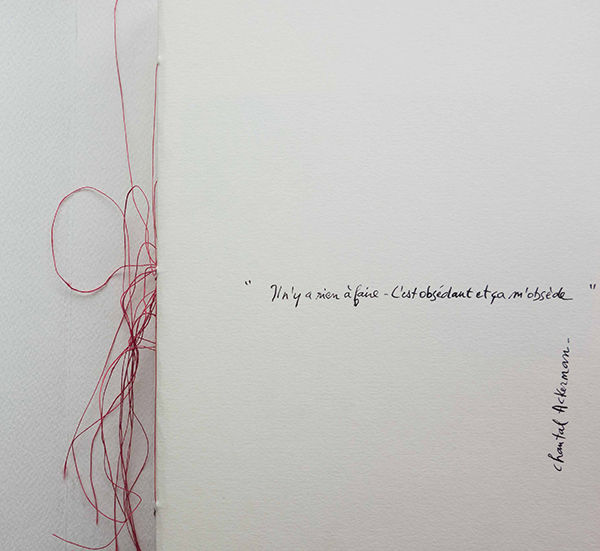 " Il n'y a rien à faire - C'est obsédant et ça m'obsède "
Chantal Ackerman -